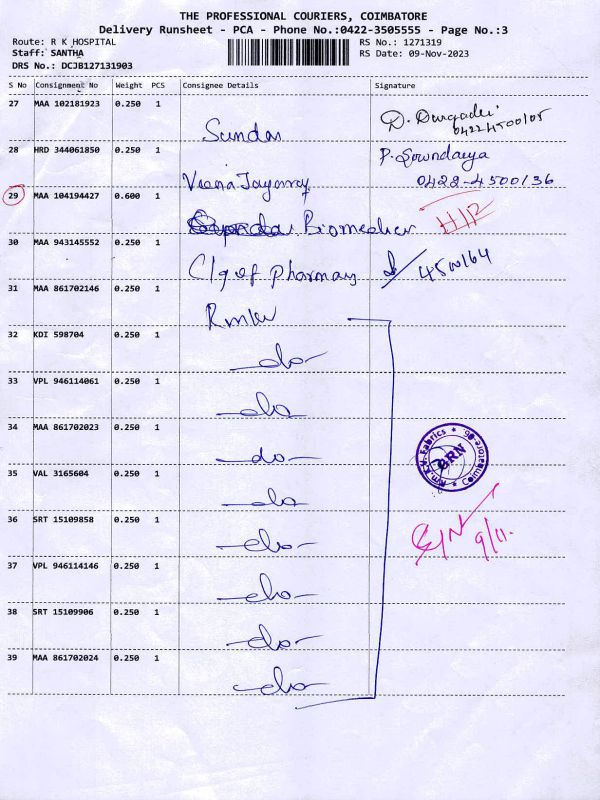 THE PROFESSIONAL COURIERS, COIMBATORE
Delivery Runsheet - PCA - Phone No.:0422-3505555 - Page No.:3
Route: R K HOSPITAL RS No.: 1271319
Staff: SANTHA RS Date: 09-Nov-2023
DRS No.: DCJB127131903
S No Consignment No Weight PCS Consignee Details Signature
27 MAA 102181923 0.250 1 Sundar
28 HRD 344061850 0.250 1 P. Soundarya
0422-4500136
29 MAA 104194427 0.600 1 Biomedical
30 MAA 943145552 0.250 1 Clg of pharmacy
31 MAA 861702146 0.250 1
32 KDI 598704 0.250 1 -do-
33 VPL 946114061 0.250 1 -do-
34 MAA 861702023 0.250 1 -do-
35 VAL 3165604 0.250 1 -do-
36 SRT 15109858 0.250 1 -do-
37 VPL 946114146 0.250 1 -do-
38 SRT 15109906 0.250 1 -do-
39 MAA 861702024 0.250 1 -do-
GRN
9/11.